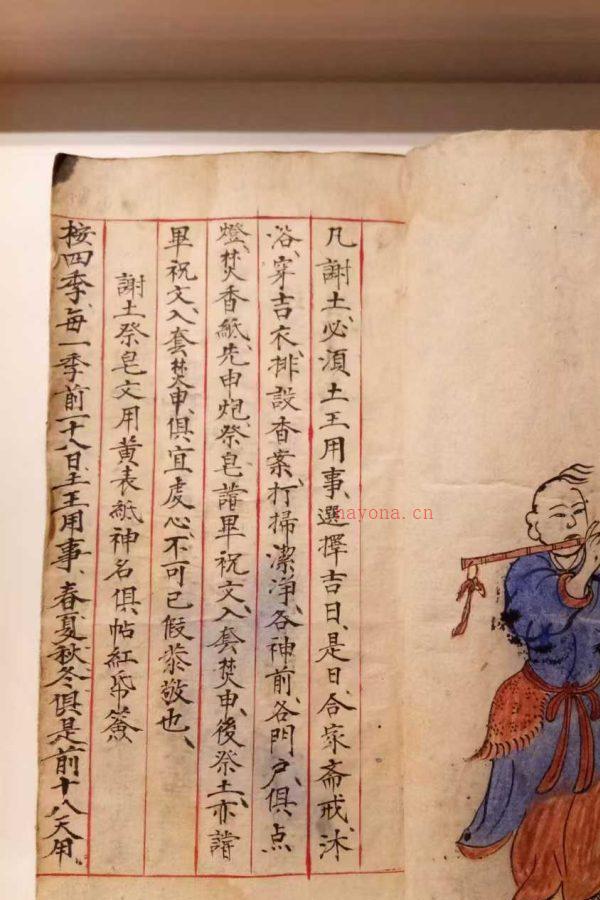 凡謝土、必須土王用事、選擇吉日、是日、合家斋戒、沐
浴、穿吉衣、排設香案、打掃潔淨、各神前、各門户、俱点
燈、焚香紙、先申炮、祭皂、諳畢、祝文、入套焚申、後祭土、亦諳
畢、祝文、入套焚申、俱宜虔心、不可已假恭敬也、
謝土祭皂文用黃表紙神名俱帖紅帋簽
按四季、每一季前一十八日、土王用事、春夏秋冬、俱是前十八天用、
nayona.cn